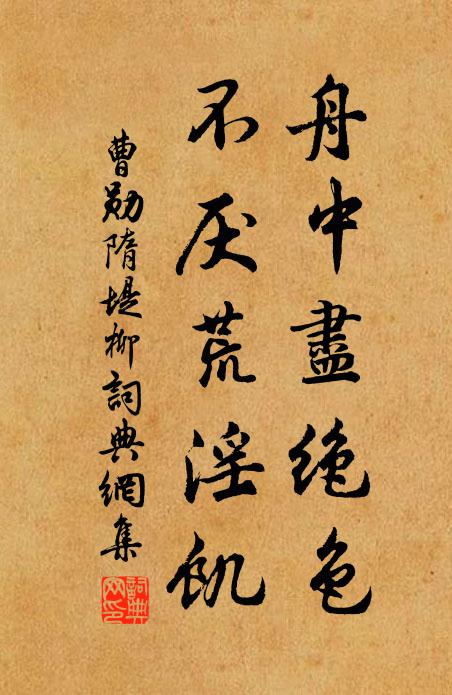 舟中盡絕色
不厌荒淫飢
曹勛隋堤柳詞典網集
詞典网印